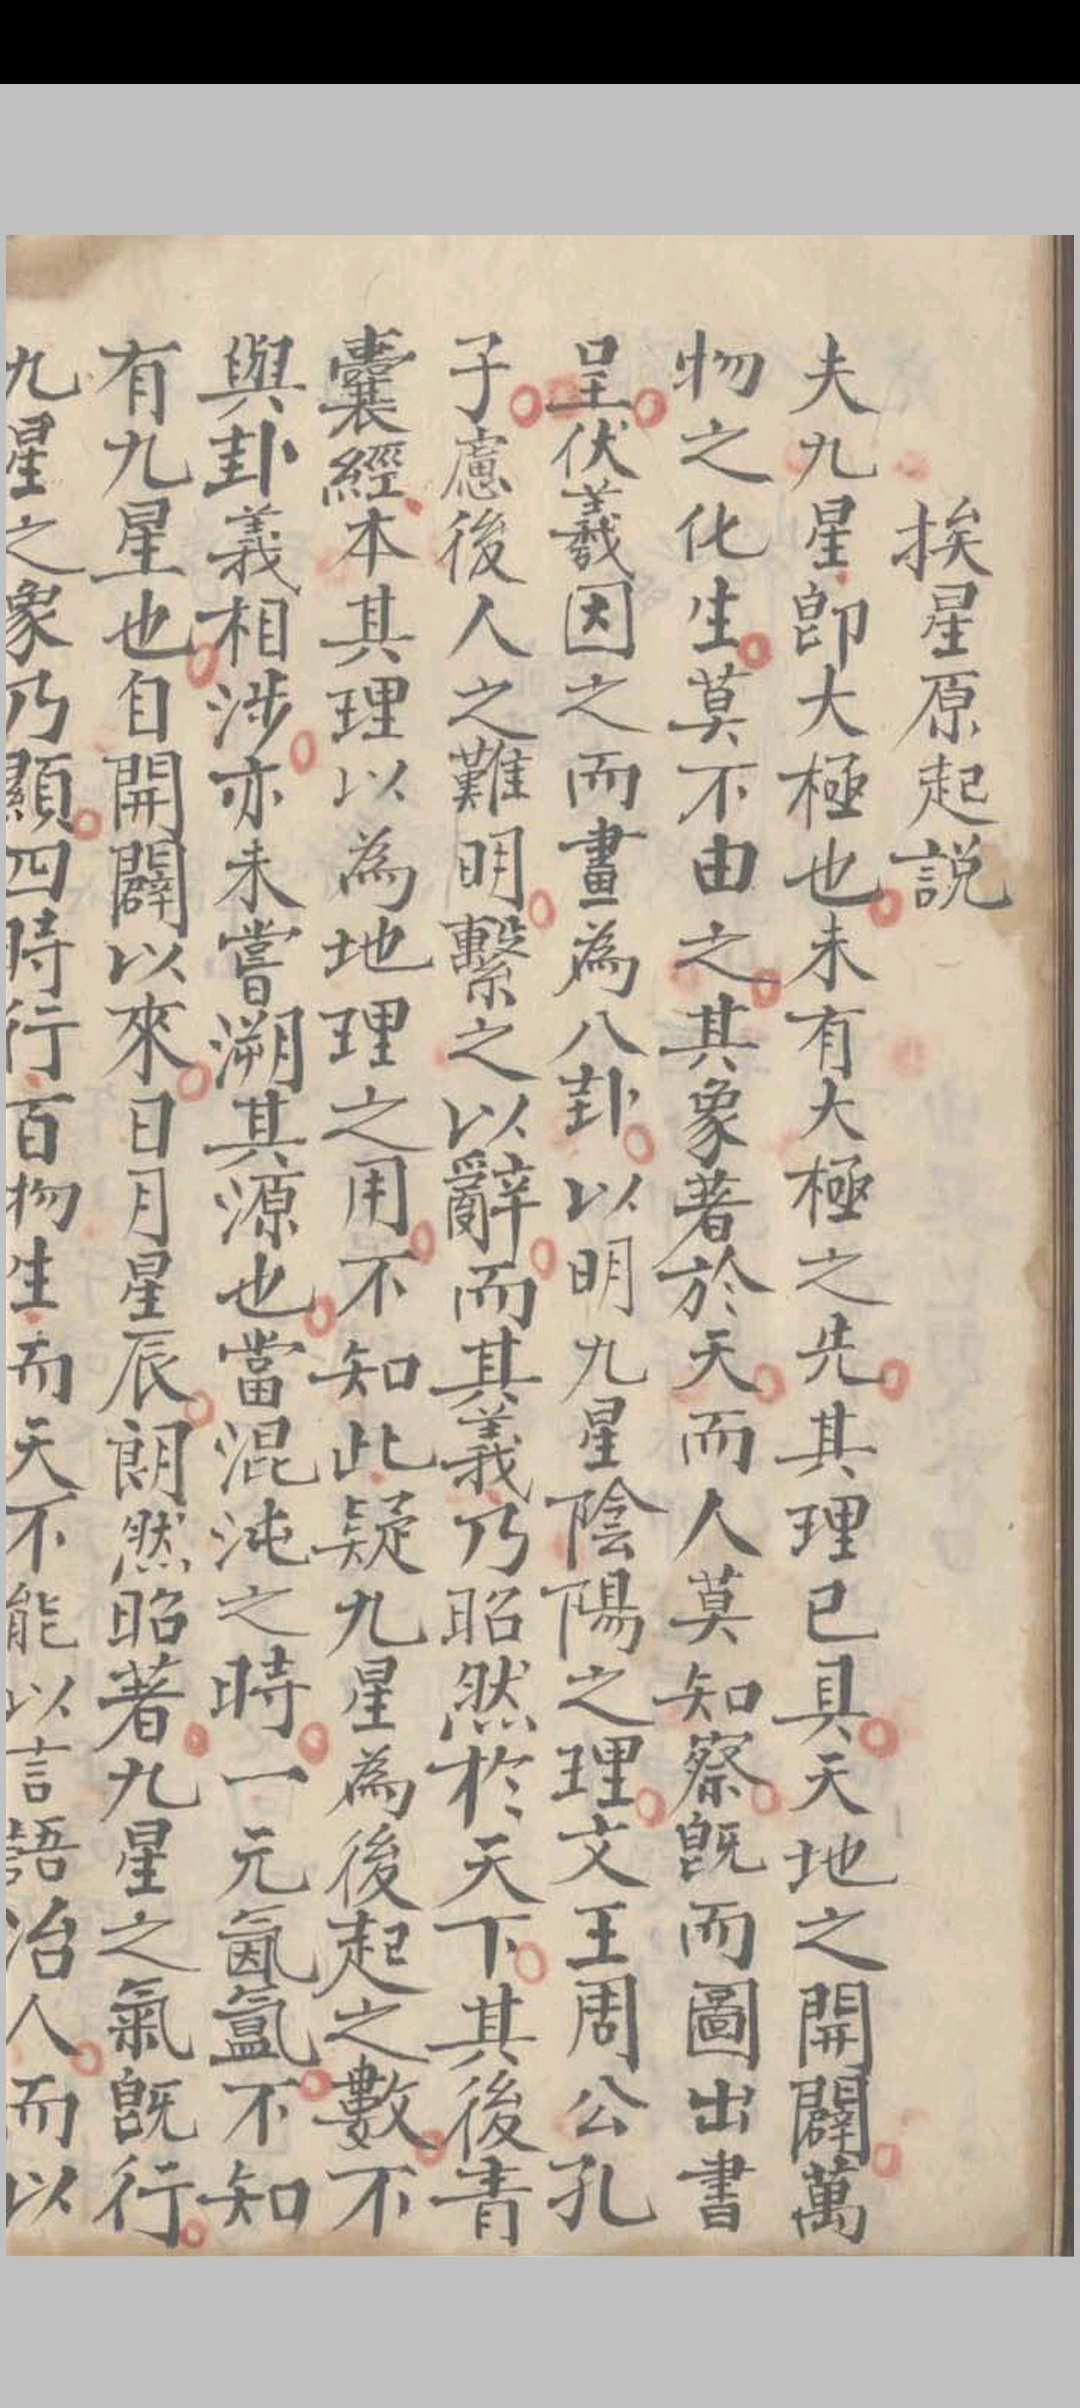 挨星原起説
夫九星即大極也未有大極之先其理已具天地之開闢萬
物之化生莫不由之其象著於天而人莫知察既而圖出書
呈伏羲因之而畫為八卦以明九星陰陽之理文王周公孔
子慮後人之難明繫之以辭而其義乃昭然於天下其後青
囊經本其理以為地理之用不知此疑九星為後起之數不
與卦義相涉亦未嘗溯其源也當混沌之時一元氤氳不知
有九星也自開闢以來日月星辰朗然昭著九星之氣既行
九星之象乃顯四時行百物生而天不能以言語治人而以